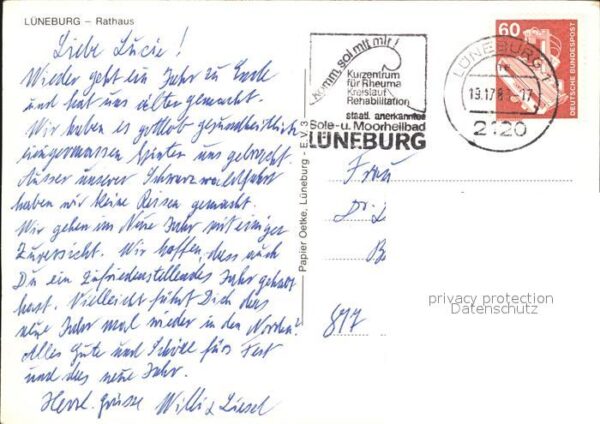 LÜNEBURG – Rathaus
Liebe Lucie!
Wieder geht ein Jahr zu Ende
und hat uns älter gemacht.
Wir haben es gottlob gesundheitlich
einigermassen hinter uns gebracht.
Ausser unserer Schwarzwaldfahrt
haben wir kleine Reisen gemacht.
Wir gehen ins Neue Jahr mit einiger
Zuversicht. Wir hoffen, dass auch
Du ein zufriedenstellendes Jahr gehabt
hast. Vielleicht führt Dich das
neue Jahr mal wieder in den Norden?
Alles Gute und Schöne fürs Fest
und das neue Jahr.
Herzl. Grüsse Willi & Liesel
Papier Oetke, Lüneburg - E.V. 3
Komm, sol mit mir!
Kurzentrum
für Rheuma
Kreislauf
Rehabilitation
staatl. anerkanntes
Sole- u. Moorheilbad
LÜNEBURG
LÜNEBURG 1
2120
60
DEUTSCHE BUNDESPOST
Frau
Dr.
817
privacy protection
Datenschutz